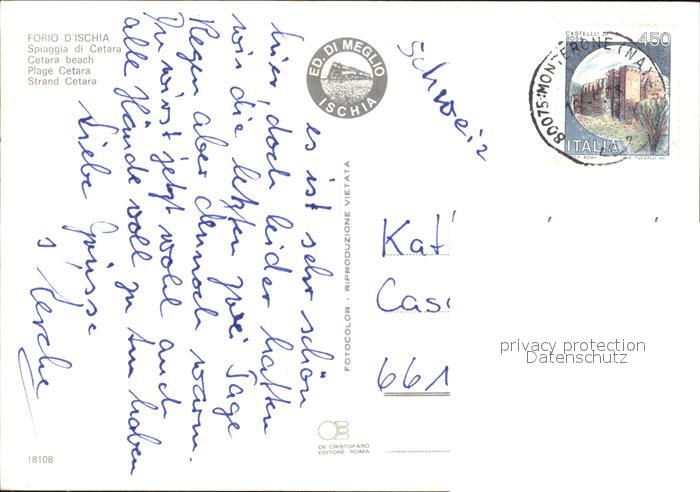 FORIO D'ISCHIA
Spiaggia di Cetara
Cetara beach
Plage Cetara
Strand Cetara
ED. DI MEGLIO
ISCHIA
es ist sehr schön
hier, doch leider hatten
wir die letzten zwei Tage
Regen aber dennoch warm.
Du wirst jetzt wohl auch
alle Hände voll zu tun haben
Liebe Grüsse
18108
FOTOCOLOR - RIPRODUZIONE VIETATA
DE CRISTOFARO
EDITORE - ROMA
Schweiz
CASTELLO DI
BOSA
450
ITALIA
80075
Kat
Cas
661
privacy protection
Datenschutz